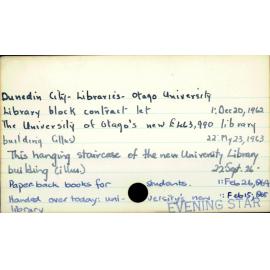 Dunedin City - Libraries - Otago University
Library block contract let 1: Dec 20, 1962
The University of Otago's new £463,990 library
building (illus) 22: May 23, 1963
This hanging staircase of the new University Library
building (illus.) 22 Sept. 26
Paper-back books for students. 1: Feb 26,
Handed over today: uni-versity's new 1: Feb 15,
library
EVENING STAR